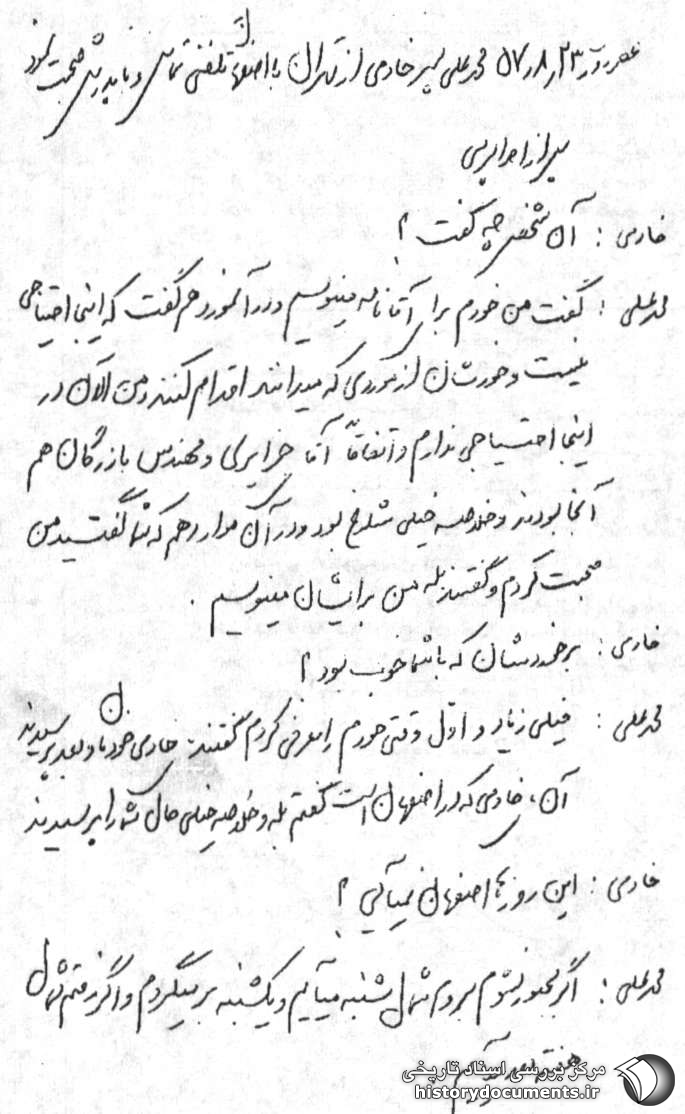 عصر روز ۵۷٫۸٫۲۳ محمدعلی پسر خادمی از تهران با اصفهان تلفنی تماس و با پدرش صحبت نمود
پس از احوالپرسی
خادمی : آن شخص چه گفت ؟
محمدعلی : گفت من خودم برای آقا نامه مینویسم و در آنمورد هم گفت که اینجا احتیاجی
نیست و خودشان از موردی که میدانند اقدام کنند و من الآن در
اینجا احتیاجی ندارم و اتفاقاً آقا جزایری و مهندس بازرگان هم
آنجا بودند و خلاصه خیلی شلوغ بود و در آن موارد هم که شما گفتید من
صحبت کردم و گفتند بله من برایشان مینویسم .
خادمی : برخوردشان که با شما خوب بود ؟
محمدعلی : خیلی زیاد و اول وقتی خودم را معرفی کردم گفتند خادمی خودمان و بعد پرسیدند
آن خادمی که در اصفهان است گفتم بله و خلاصه خیلی حال شما را پرسیدند
خادمی : این روزها اصفهان نمیآئی ؟
محمدعلی : اگر مجبور نشوم بروم شمال شنبه میآیم و یکشنبه برمیگردم و اگر رفتم شمال
هفته بعد
مرکز بررسی اسناد تاریخی
historydocuments.ir